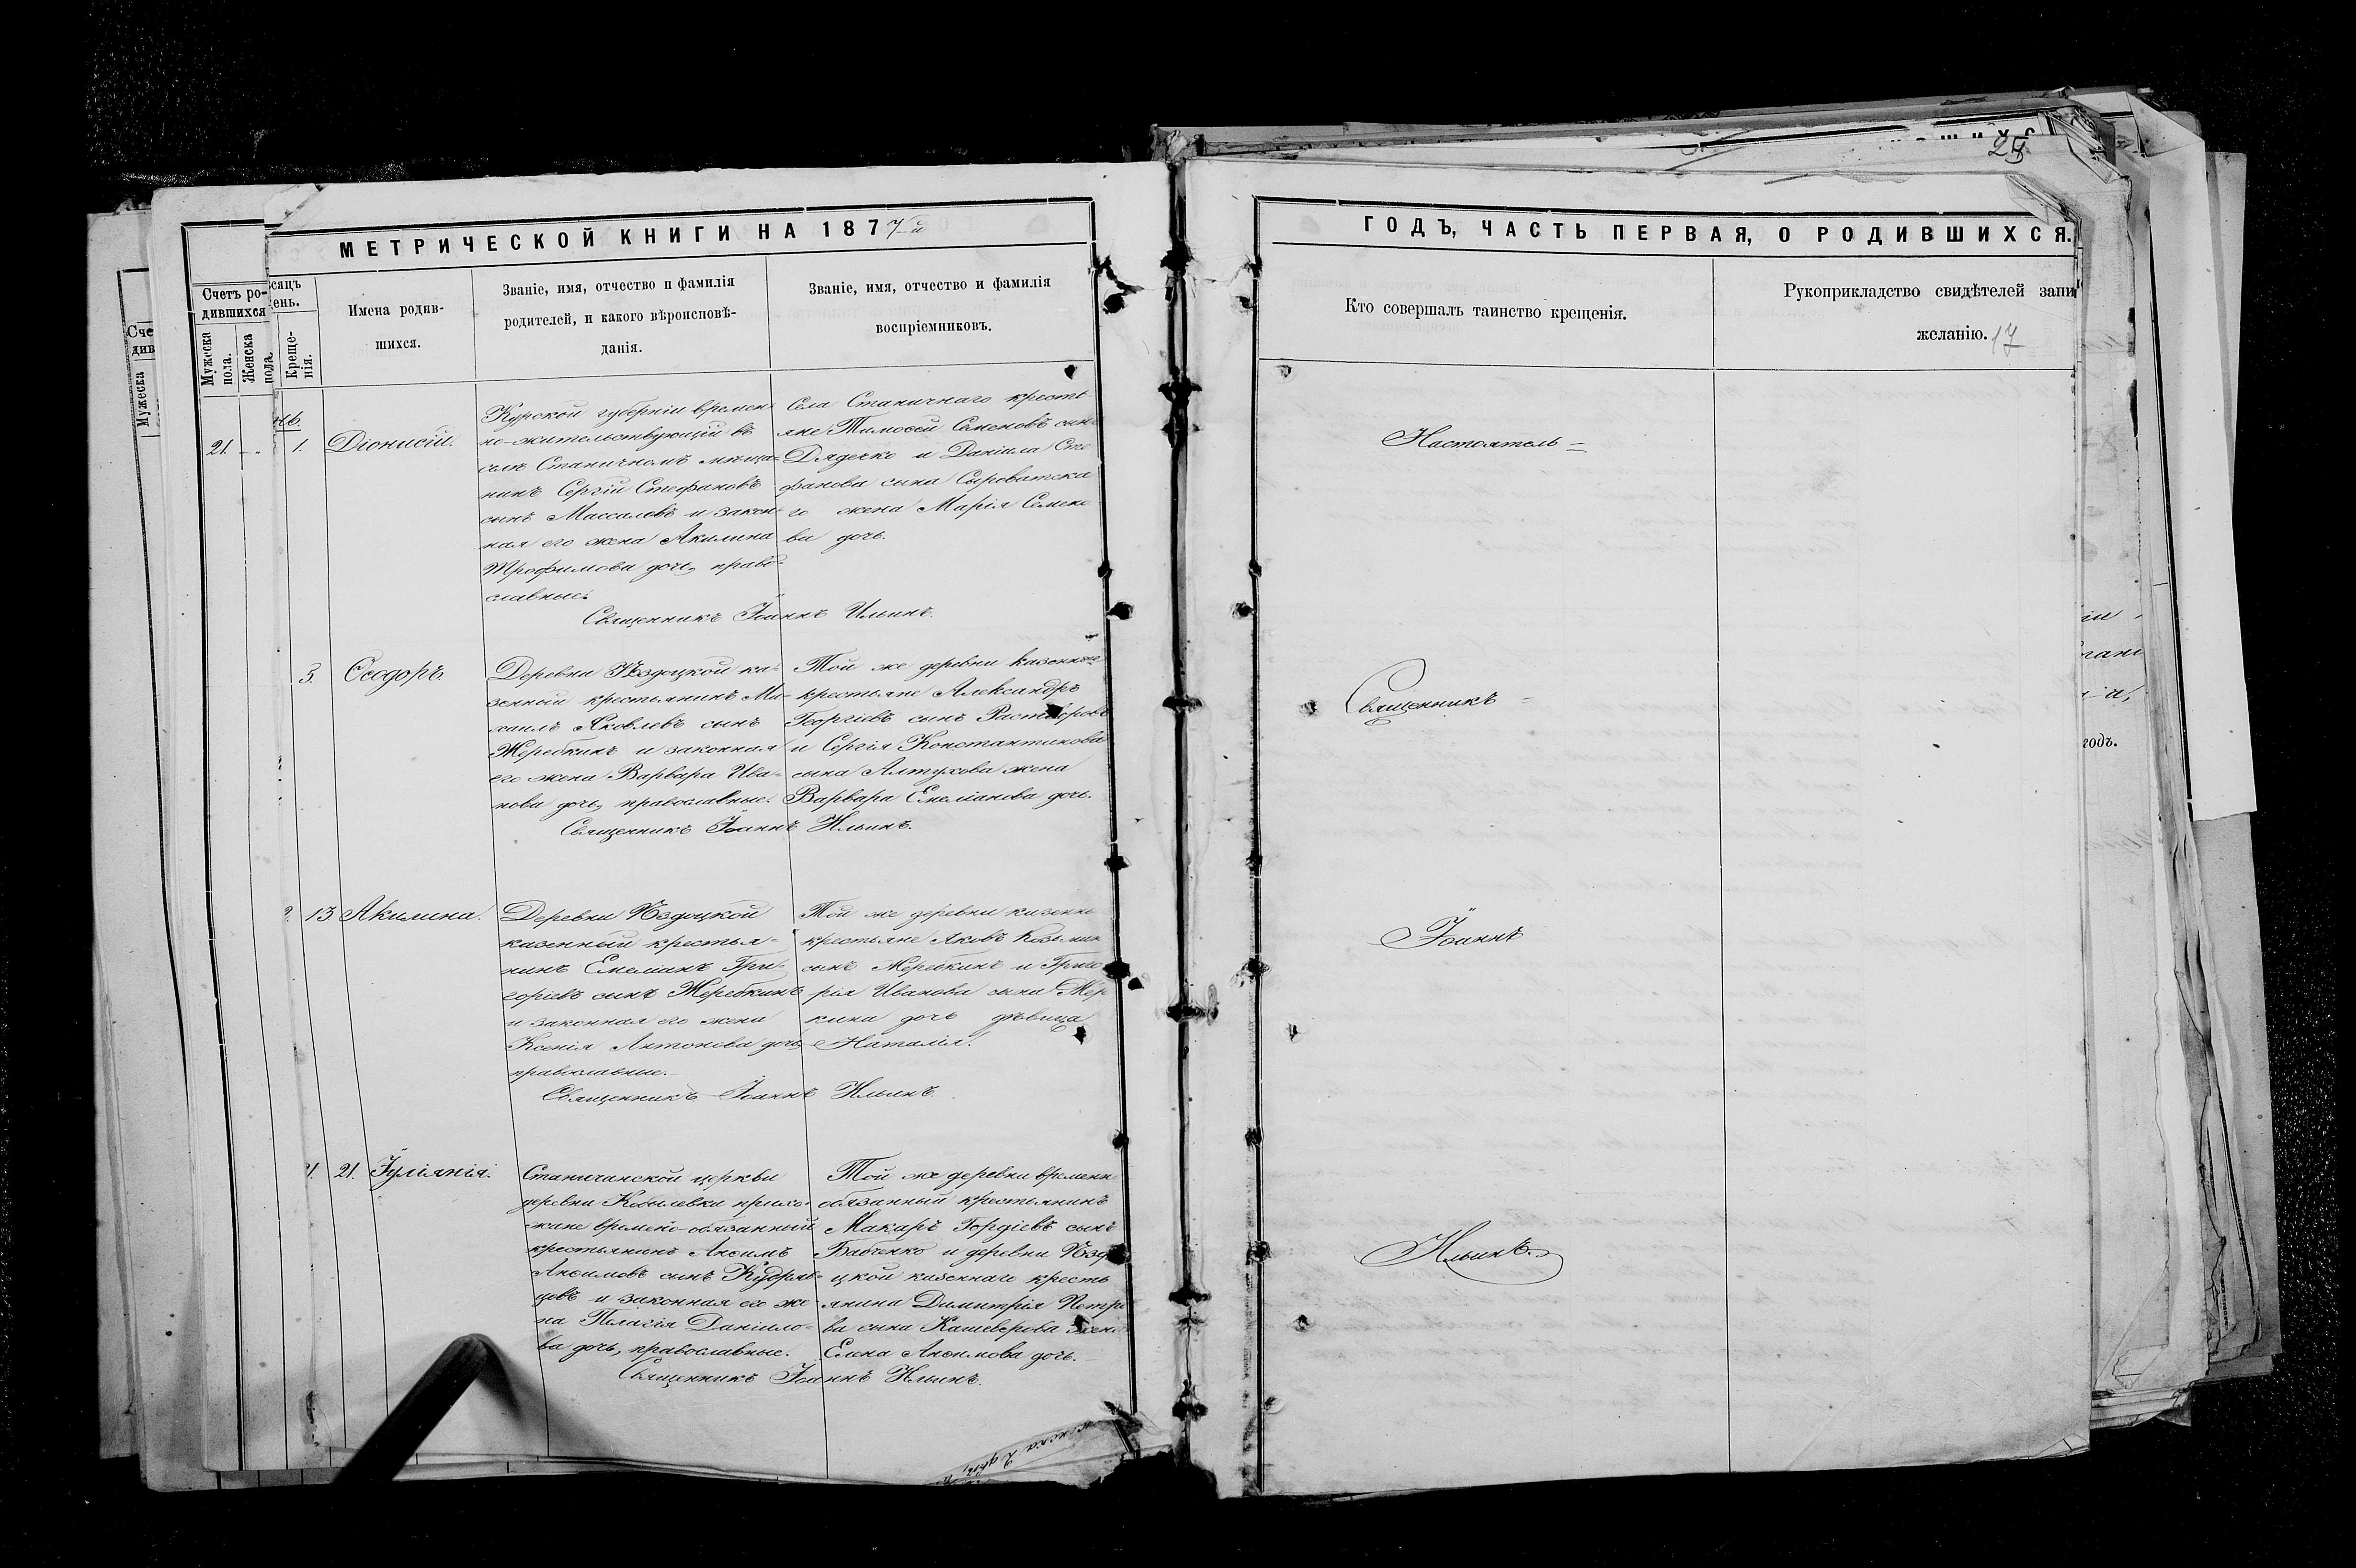 МЕТРИЧЕСКОЙ КНИГИ НА 1877й
Счетъ ро-
дившихся
Мужеска пола.
Женска пола.
Креще-
нія.
Имена родив-
шихся.
Званіе, имя, отчество и фамилія
родителей, и какого вѣроисповѣ-
данія.
Званіе, имя, отчество и фамилія
воспріемниковъ.
21.
1.
Діонисій.
Курской губерніи времен-
но-жительствующій въ
селѣ Станичномъ мѣща-
нинъ Сергій Стефановъ
сынъ Массаловъ и закон-
ная его жена Акилина
Трофимова дочь, право-
славные.
Села Станичнаго кресть
яне Тимоѳей Семеновъ сынъ
Дядечко и Даніила Сте
фанова сына Сыроватска
го жена Марія Семено
ва дочь.
Священникъ Іоаннъ Ильинъ.
3.
Ѳеодоръ.
Деревни Ѣздоцкой ка-
зенный крестьянинъ Ми-
хаилъ Яковлевъ сынъ
Жеребкинъ и законная
его жена Варвара Ива-
нова дочь, православные.
Той же деревни казенные
крестьяне Александръ
Георгіевъ сынъ Растворовъ
и Сергія Константинова
сына Алтухова жена
Варвара Емеліанова дочь.
Священникъ Іоаннъ Ильинъ.
13
Акилина.
Деревни Ѣздоцкой
казенный крестья-
нинъ Емеліанъ Гри-
горіевъ сынъ Жеребкинъ
и законная его жена
Ксенія Антонова дочь
православные.
Той же деревни казенн
крестьяне Яковъ Козьмин
сынъ Жеребкинъ и Григо
рія Иванова сына Жер
кина дочь дѣвица
Наталія.
Священникъ Іоаннъ Ильинъ
21.
Іуліанія.
Станичанской церкви
деревни Кобылевки прихо-
жане времено-обязанный
крестьянинъ Анѳимъ
Анѳимовъ сынъ Кудряв-
цевъ и законная его же-
на Пелагія Даніило-
ва дочь, православные.
Той же деревни временн
обязанный крестьянинъ
Макаръ Гордіевъ сынъ
Бабченко и деревни Ѣздо
цкой казеннаго кресть
янина Димитрія Петро
ва сына Кашеверова жена
Елена Анѳимова дочь.
Священникъ Іоаннъ Ильинъ.
ГОДЪ, ЧАСТЬ ПЕРВАЯ, О РОДИВШИХСЯ.
Кто совершалъ таинство крещенія.
Рукоприкладство свидѣтелей запи
желанію. 17
Настоятель
Священникъ
Іоаннъ
Ильинъ.
годъ.